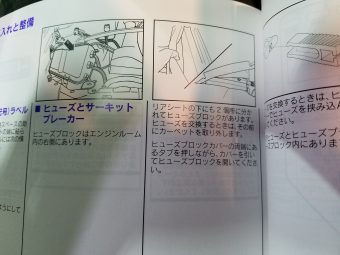 入れと整備
ラベル
■ ヒューズとサーキット
ブレーカー
ヒューズブロックはエンジンルーム
内の右側にあります。
リアシートの下にも2個所に分か
れてヒューズブロックがあります。
ヒューズを交換するときは、その前
にカーペットを取り外します。
ヒューズブロックカバーの両端にあ
るタブを押しながら、カバーを引い
てヒューズブロックを開いてくださ
い。
を交換するときは、ヒ
ヒューズを挟み込ん
ください。
ヒューズとヒューズブ
ーズブロック内にあります
ようにして